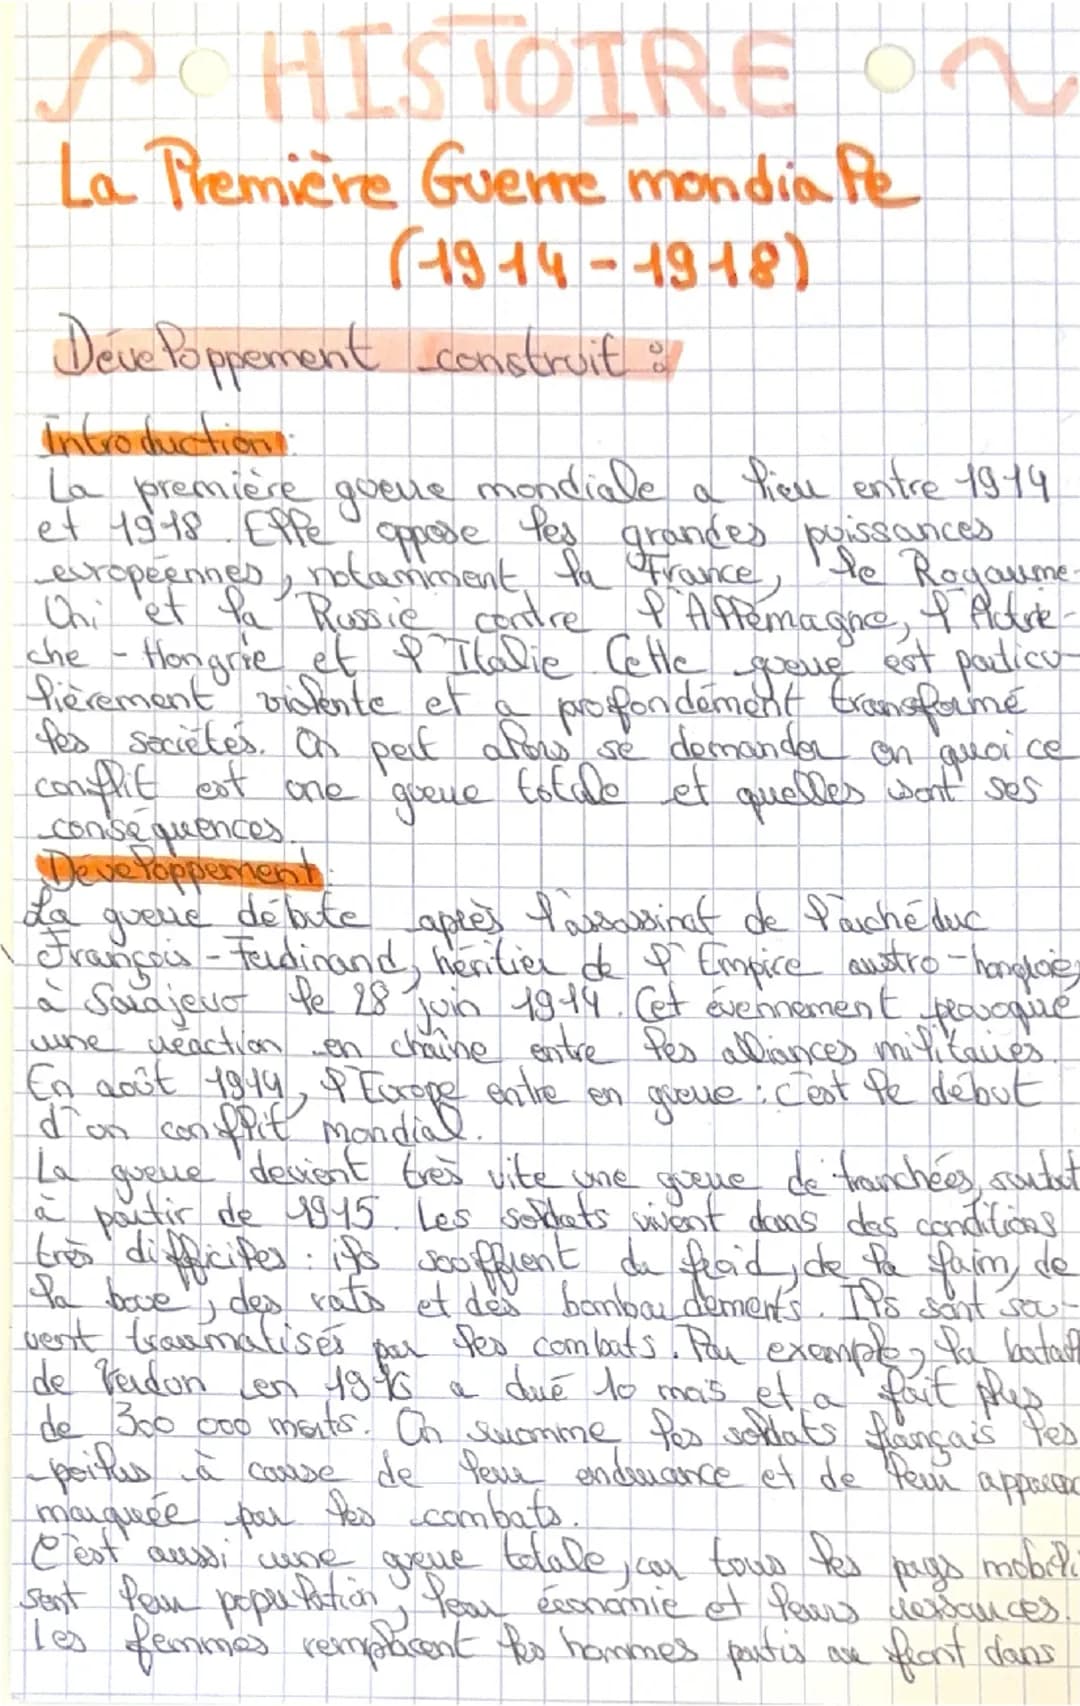 HISTOIRE
La Première Guerre mondiale
(1914-1918)
Développement construit :
Introduction :
La première guerre mondiale a lieu entre 1914
et 1918. Elle oppose les grandes puissances
européennes, notamment la France, le Royaume-
Uni et la Russie contre l'Allemagne, l'Autri-
che-Hongrie et l'Italie. Cette guerre est particu-
lièrement violente et a profondément transformé
les sociétés. On peut alors se demander en quoi ce
conflit est une guerre totale et quelles sont ses
conséquences.
Développement :
La guerre débute après l'assassinat de l'archéduc
François-Ferdinand, héritier de l'Empire austro-hongrois,
à Sarajevo le 28 juin 1914. Cet évennement provoque
une réaction en chaîne entre les alliances militaires.
En août 1914, l'Europe entre en guerre : c'est le début
d'un conflit mondial.
La guerre devient très vite une guerre de tranchées, surtout
à partir de 1915. Les soldats vivent dans des conditions
très difficiles : ils souffrent du froid, de la faim, de
la boue, des rats et des bombardements. Ils sont sou-
vent traumatisés par les combats. Par exemple, la batail
de Verdun en 1916 a duré 10 mois et a fait plus
de 300 000 morts. On surnomme les soldats français les
poilus à cause de leur endurance et de leur apparenc
marquée par les combats.
C'est aussi une guerre totale, car tous les pays mobili
sent leur population, leur économie et leurs ressources.
Les femmes remplacent les hommes partis au front dans